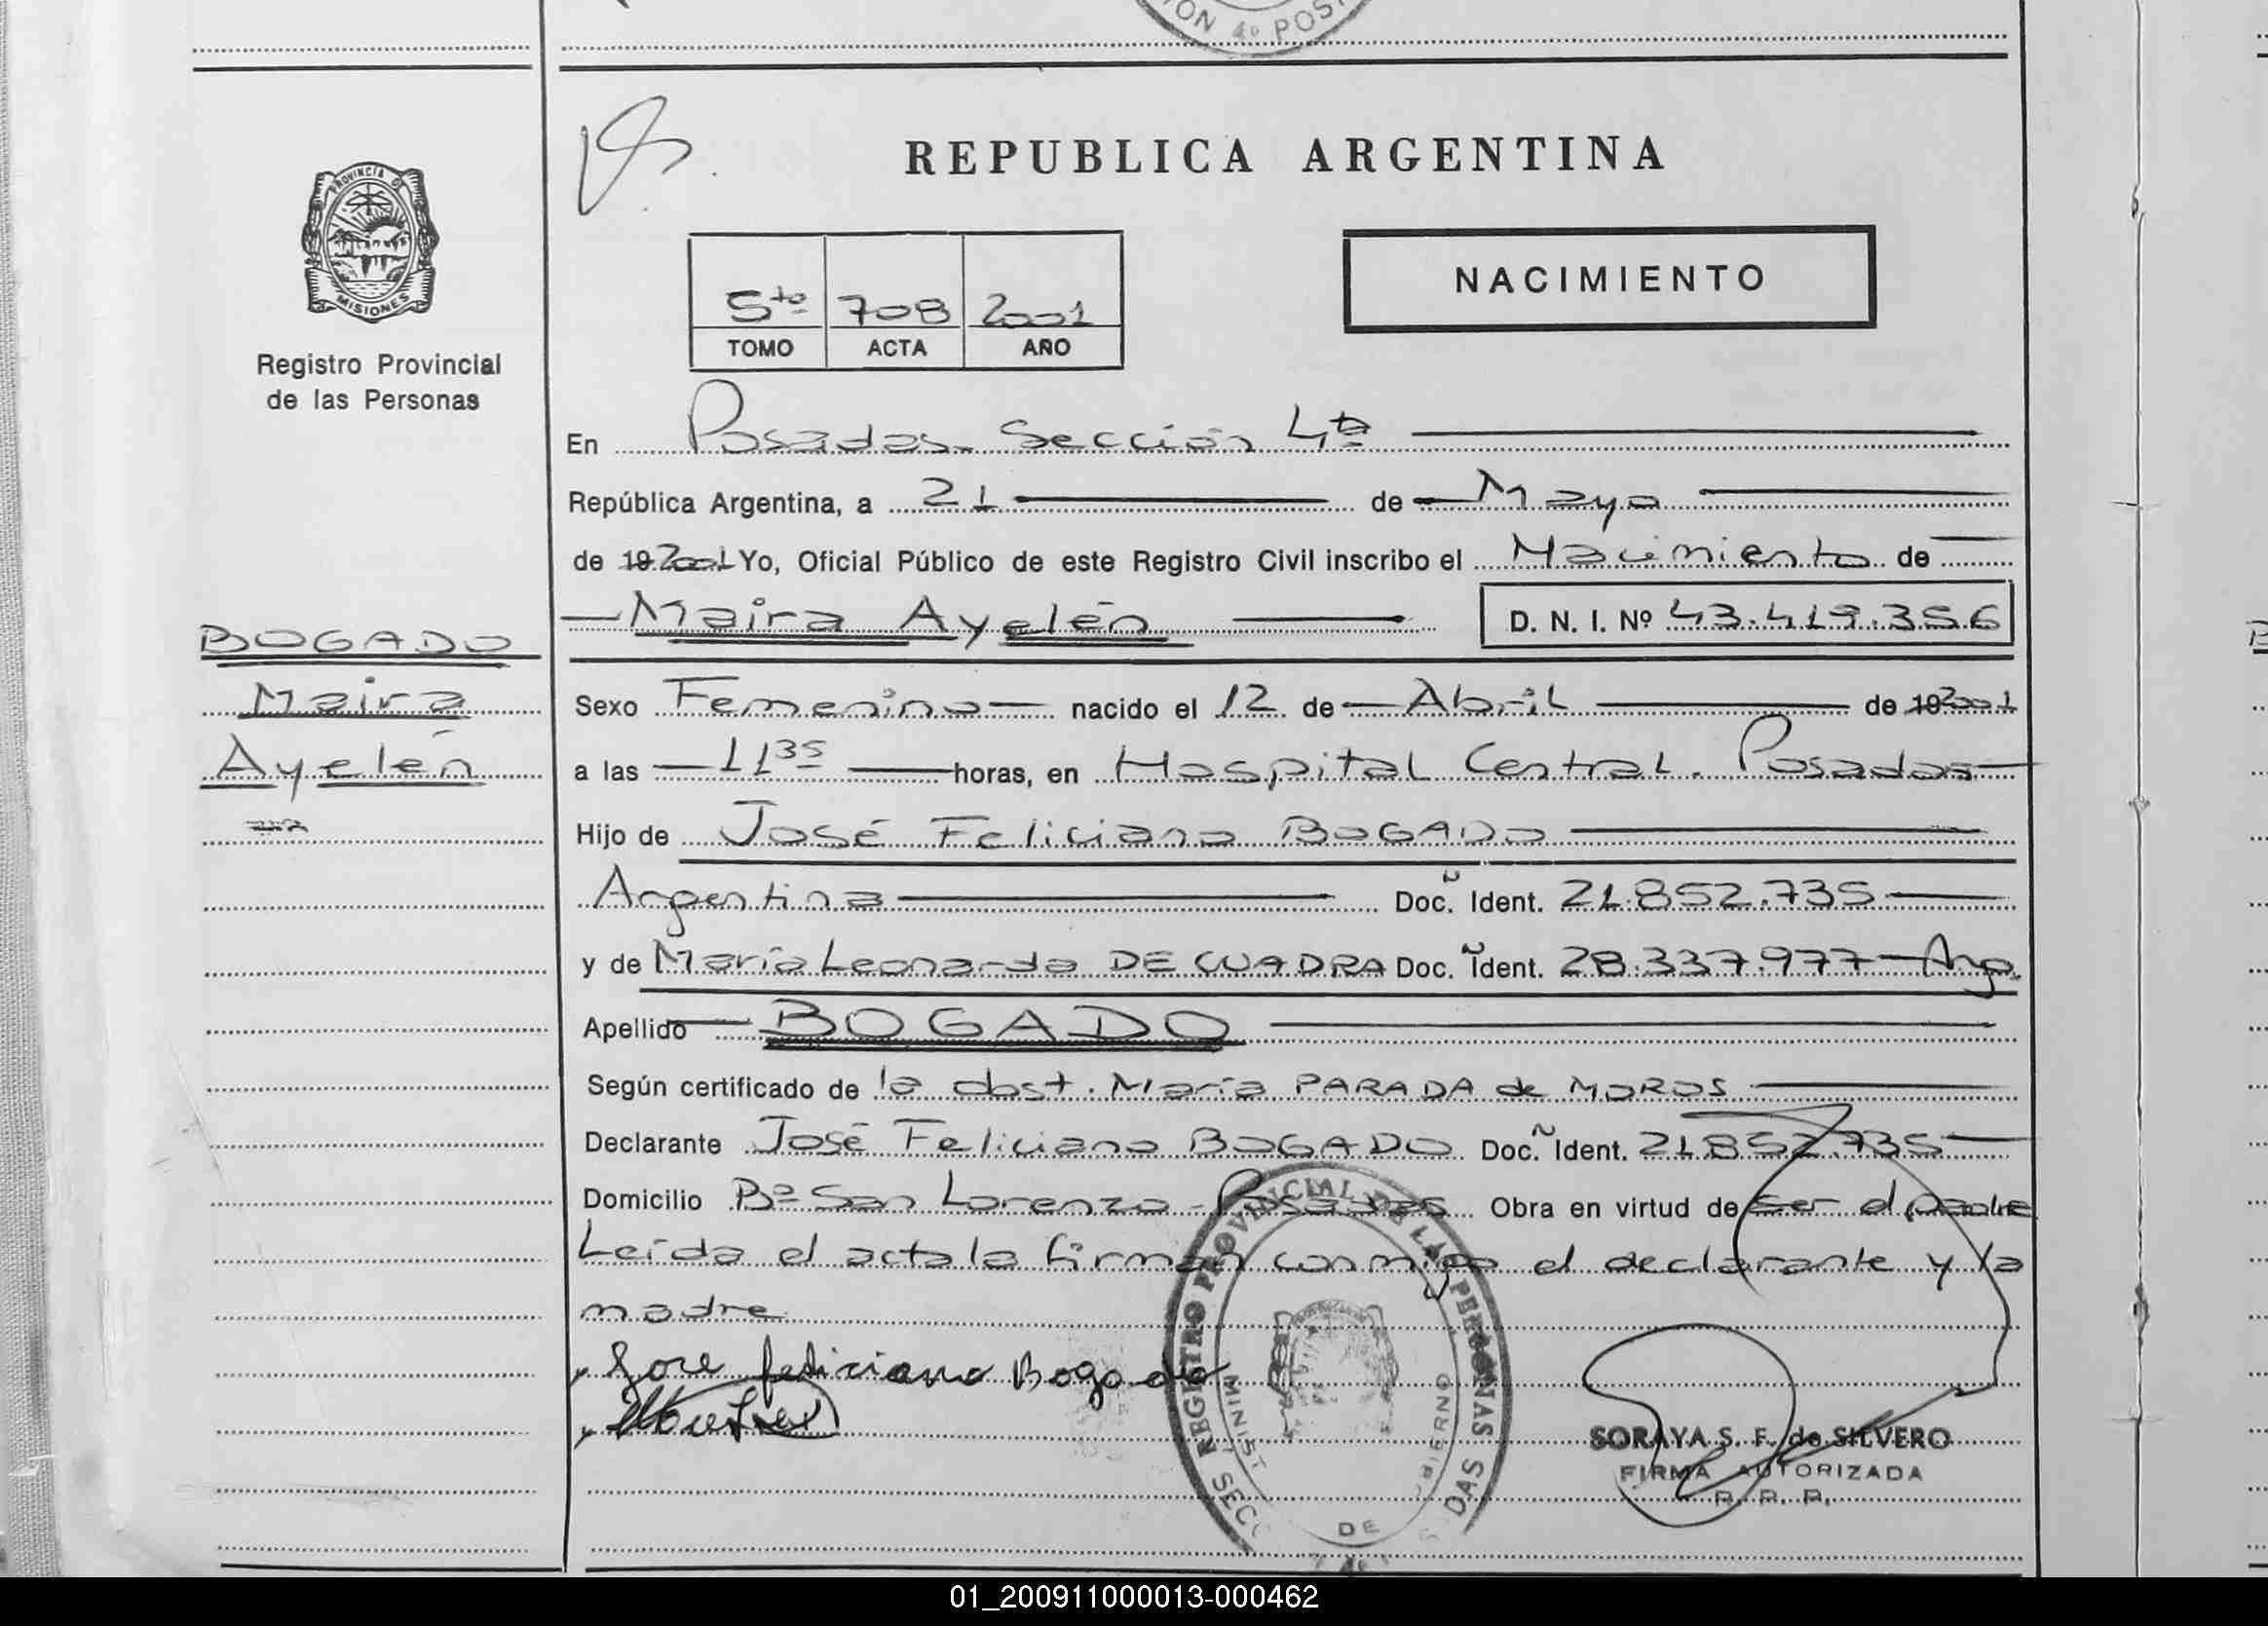 ION 4º POS
REPUBLICA ARGENTINA
PROVINCIA D
MISIONES
Registro Provincial
de las Personas
NACIMIENTO
5to 708 2001
TOMO ACTA AÑO
En Posadas. Sección 4ta
República Argentina, a 21 de Mayo
de 19 2001 Yo, Oficial Público de este Registro Civil inscribo el Nacimiento de
Maira Ayelén D. N. I. Nº 43.419.356
BOGADO
Maira
Ayelén
Sexo Femenino nacido el 12 de Abril de 19 2001
a las 11 35 horas, en Hospital Central. Posadas
Hijo de José Feliciano BOGADO
Argentina Doc. Ident. 21.852.735
y de María Leonarda DE CUADRA Doc. Ident. 28.337.977 Arg.
Apellido BOGADO
Según certificado de la obst. María PARADA de MOROS
Declarante José Feliciano BOGADO Doc. Ident. 21.852.735
Domicilio Bº San Lorenzo - Posadas Obra en virtud de ser el padre
Leída el acta la firman conmigo el declarante y la
madre
Jose feliciano Bogado
REGISTRO PROVINCIAL DE LAS PERSONAS
MINIST DE BIERNO
SECC DAS
SORAYA S. F. de SILVERO
FIRMA AUTORIZADA
R. P. P.
01_200911000013-000462